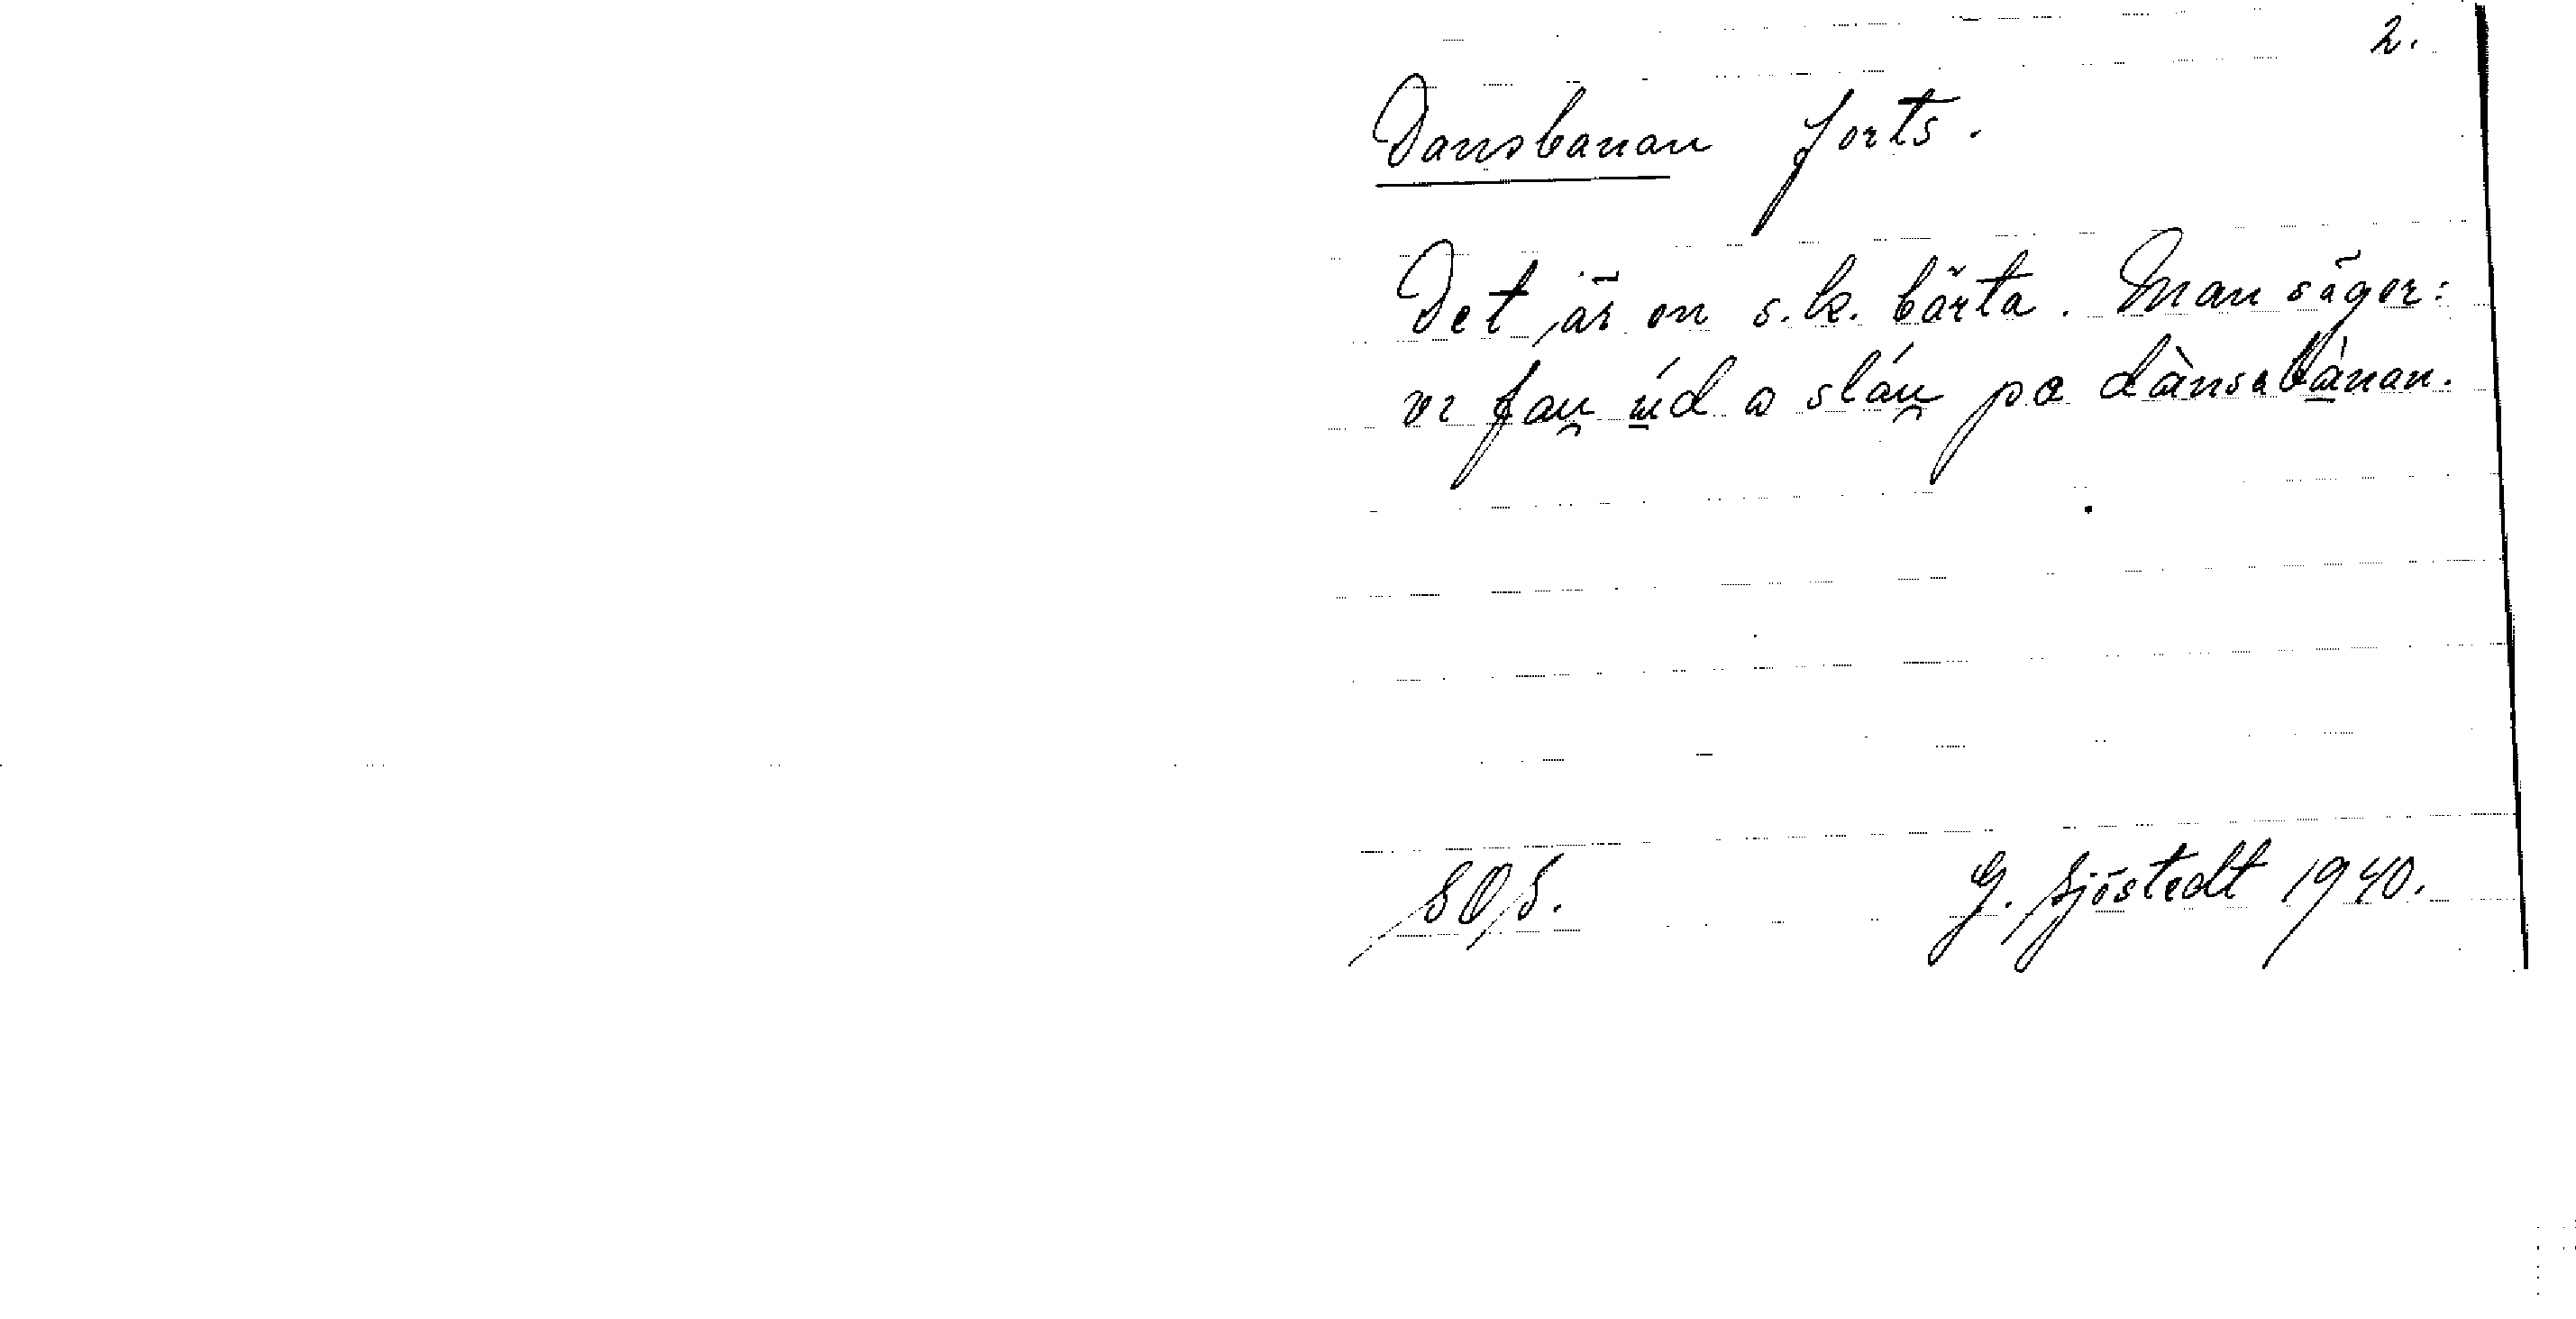 2.
Dansbanan forts.
Det är en s.k. bärta. Man säger:
vi fau̯ úd a sláu̯ pa dànsabànan.
SOS.
G. Sjöstedt 1940.